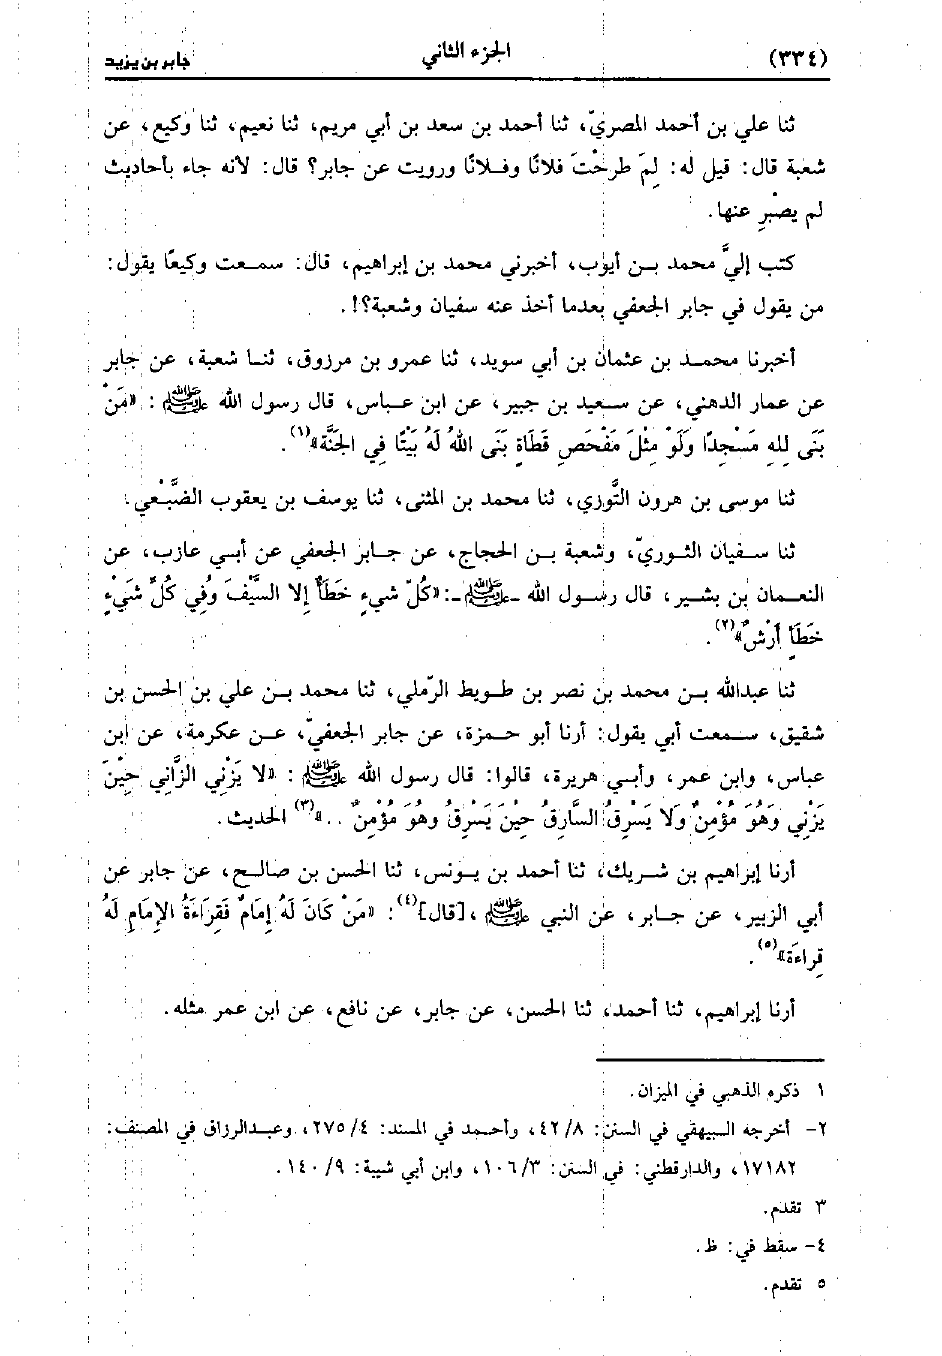 (٣٣٤) الجزء الثاني جابر بن يزيد
ثنا علي بن أحمد المصريّ، ثنا أحمد بن سعد بن أبي مريم، ثنا نعيم، ثنا وكيع، عن
شعبة قال: قيل له: لِمَ طرحْتَ فلانًا وفلانًا ورويت عن جابر؟ قال: لأنه جاء بأحاديث
لم يصْبِر عنها.
كتب إليَّ محمد بن أيوب، أخبرني محمد بن إبراهيم، قال: سمعت وكيعًا يقول:
من يقول في جابر الجعفي بعدما أخذ عنه سفيان وشعبة؟!.
أخبرنا محمد بن عثمان بن أبي سويد، ثنا عمرو بن مرزوق، ثنا شعبة، عن جابر
عن عمار الدهني، عن سعيد بن جبير، عن ابن عباس، قال رسول الله ﷺ : «مَنْ
بَنَى لله مَسْجدًا وَلَوْ مثْلَ مَفْحَص قَطَاةٍ بَنَى اللهُ لَهُ بَيْتًا فِي الجَنَّة»(١).
ثنا موسى بن هرون التَّوزي، ثنا محمد بن المثنى، ثنا يوسف بن يعقوب الضَّبْعي.
ثنا سفيان الثوريّ، وشعبة بن الحجاج، عن جابر الجعفي عن أبي عازب، عن
النعمان بن بشير، قال رسول الله ـﷺـ:«كُلّ شيءٍ خَطَأٌ إلا السَّيْفَ وَفي كُلِّ شَيْءٍ
خَطَأٍ أَرْشٌ»(٢).
ثنا عبدالله بن محمد بن نصر بن طويط الرّملي، ثنا محمد بن علي بن الحسن بن
شقيق، سمعت أبي يقول: أرنا أبو حمزة، عن جابر الجعفيّ، عن عكرمة، عن ابن
عباس، وابن عمر، وأبي هريرة، قالوا: قال رسول الله ﷺ : «لا يَزْنِي الزَّانِي حِيْنَ
يَزْنِي وَهُوَ مُؤْمِنٌ وَلَا يَسْرِقُ السَّارِقُ حِيْنَ يَسْرِقُ وهُوَ مُؤْمِنٌ ..»(٣) الحديث.
أرنا إبراهيم بن شريك، ثنا أحمد بن يونس، ثنا الحسن بن صالح، عن جابر عن
أبي الزبير، عن جابر، عن النبي ﷺ ،[قال](٤): «مَنْ كَانَ لَهُ إِمَامٌ فَقِرَاءَةُ الإِمَامِ لَهُ
قِراءَة»(٥).
أرنا إبراهيم، ثنا أحمد، ثنا الحسن، عن جابر، عن نافع، عن ابن عمر مثله.
١ ذكره الذهبي في الميزان.
٢- أخرجه البيهقي في السنن: ٤٢/٨، وأحمد في المسند: ٢٧٥/٤، وعبدالرزاق في المصنف:
١٧١٨٢، والدارقطني: في السنن: ١٠٦/٣، وابن أبي شيبة: ١٤٠/٩.
٣ تقدم.
٤- سقط في: ظ.
٥ تقدم.